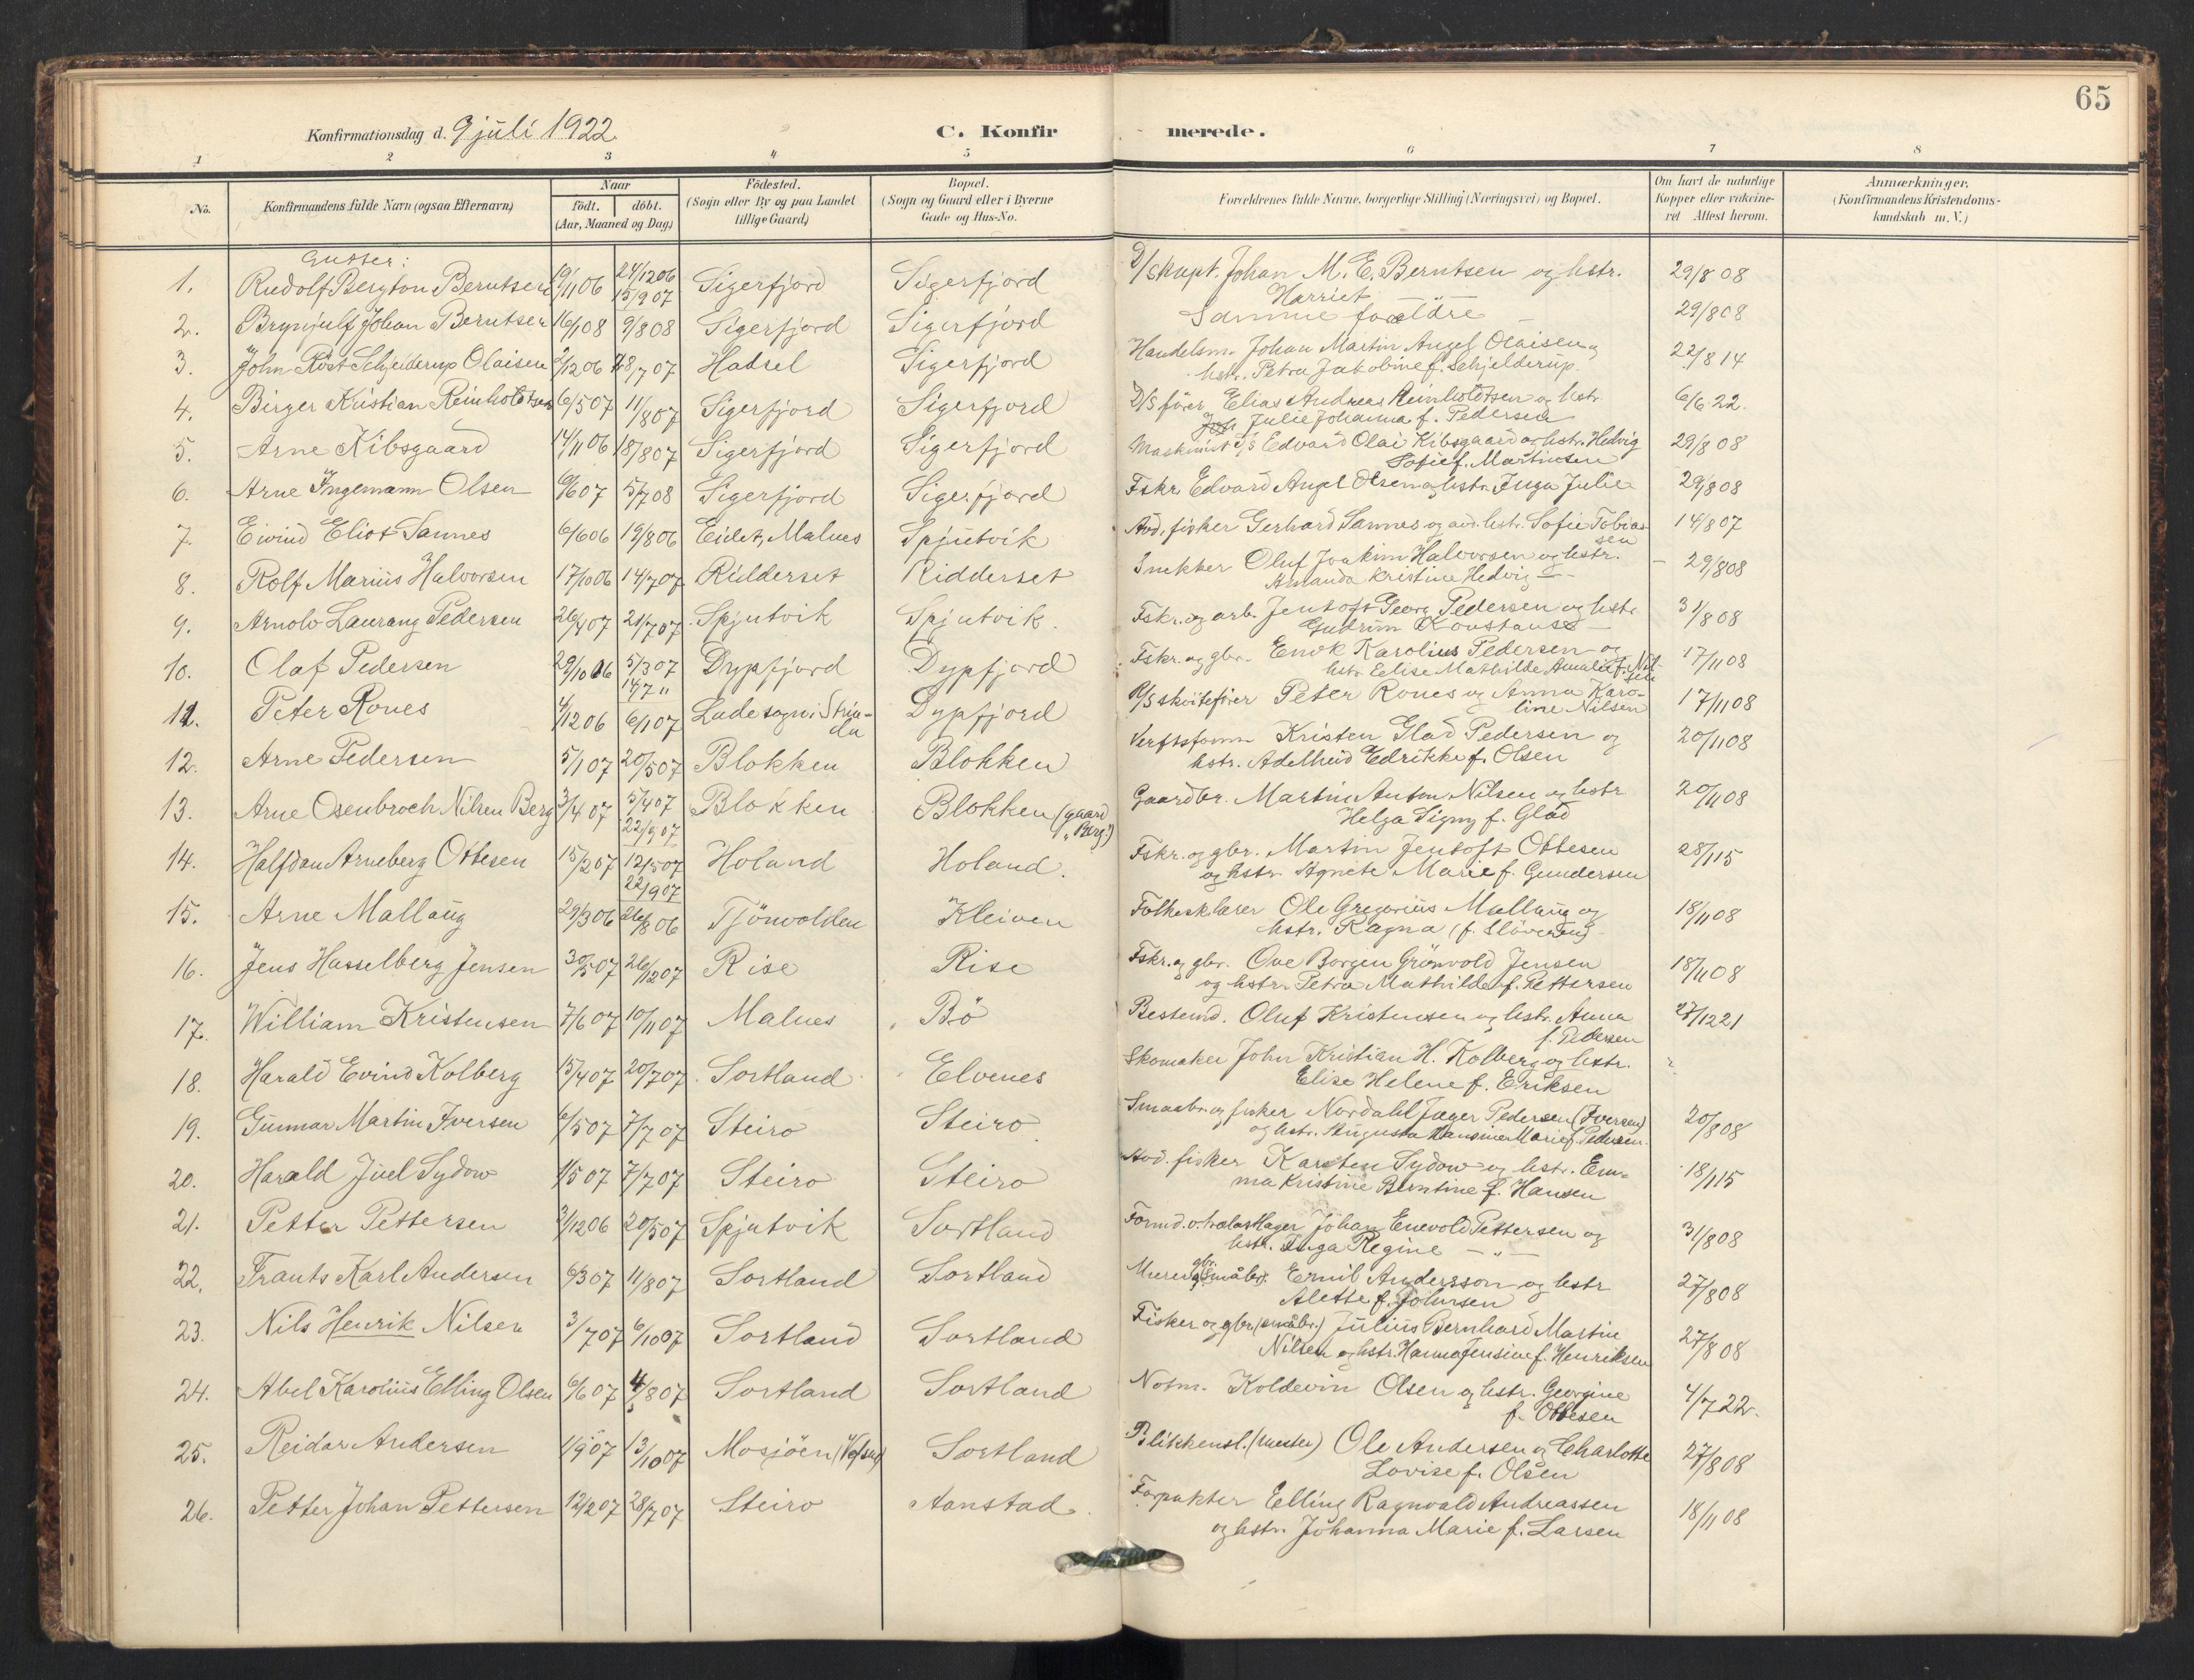 65
Konfirmationsdag d. 9 juli 1922.
C. Konfirmerede.
1 2 3 4 5 6 7 8
No. Konfirmandens fulde Navn (ogsaa Efternavn) Naar födt. döbt. (Aar, Maaned og Dag) Födested. (Sogn eller By og paa Landet tillige Gaard) Bopæl. (Sogn og Gaard eller i Byerne Gade og Hus-No. Forældrenes fulde Navne, borgerlige Stilling (Næringsvei) og Bopæl. Om havt de naturlige Kopper eller vakcineret Attest herom. Anmærkninger. (Konfirmandens Kristendomskundskab m. V.)
Gutter:
1. Rudolf Bergton Berntsen 19/11 06 24/12 06 Sigerfjord Sigerfjord D/Skapt. Johan M. E. Berntsen og hstr. 29/8 08
15/9 07 Harriet
2. Brynjulf Johan Berntsen 16/1 08 9/8 08 Sigerfjord Sigerfjord Samme forældre 29/8 08
3. John Röst Schjelderup Olaisen 2/12 06 28/7 07 Hadsel Sigerfjord Handelsm. Johan Martin Angel Olaisen og 22/8 14
hstr. Petra Jakobine f. Schjelderup.
4. Birger Kristian Reinholdtsen 6/5 07 11/8 07 Sigerfjord Sigerfjord D/S förer Elias Andreas Reinholdtsen og hstr 6/6 22.
Julie Johanna f. Pedersen
5. Arne Kibsgaard 14/11 06 18/8 07 Sigerfjord Sigerfjord Maskinist D/S Edvard Olai Kibsgaard og hstr. Hedvig 29/8 08
Sofie f. Martinsen
6. Arne Ingemann Olsen 9/6 07 5/7 08 Sigerfjord Sigerfjord Fskr. Edvard Angel Olsen og hstr. Inga Julie 29/8 08
7. Eivind Eliot Sannes 6/6 06 19/8 06 Eidet, Malnes Spjutvik Avd. fisker Gerhard Sannes og avd. hstr. Sofie Tobias- 14/8 07
sen
8. Rolf Marius Halvorsen 17/10 06 14/7 07 Ridderset Ridderset Snekker Oluf Joakim Halvorsen og hstr. 29/8 08
Amanda Kristine Hedvig - " -
9. Arnold Laurang Pedersen 26/4 07 21/7 07 Spjutvik Spjutvik. Fskr. og arb. Jentoft Georg Pedersen og hstr 31/8 08
Gudrun Konstanse -
10. Olaf Pedersen 29/10 06 5/3 07 Dypfjord Dypfjord Fskr. og gbr. Enok Karolius Pedersen og 17/11 08
14/7 " hstr. Elise Mathilde Amalie f. Nilsen
11. Peter Rones 4/12 06 6/1 07 Lade sogn i Strin- Dypfjord R/S skøitefører Peter Rones og Anna Karo- 17/11 08
da line Nilsen
12. Arne Pedersen 5/1 07 20/5 07 Blokken Blokken Verftsform Kristen Glad Pedersen og 20/11 08
hstr. Adelheid Edrikke f. Olsen
13. Arne Osenbroch Nilsen Berg 3/4 07 5/4 07 Blokken Blokken (gaard Gaardbr. Martin Anton Nilsen og hstr 20/11 08
22/9 07 "Berg") Helga Signy f. Glad
14. Halfdan Arneberg Ottesen 15/2 07 12/5 07 Holand Holand. Fskr. og gbr. Martin Jentoft Ottesen 28/1 15
22/9 07 og hstr. Agnete Marie f. Gundersen
15. Arne Mallaug 29/3 06 26/8 06 Tjönvolden Kleiven Folkesklærer Ole Gregorius Mallaug og 18/11 08
hstr. Ragna
16. Jens Hasselberg Jensen 30/5 07 26/12 07 Rise Rise Fskr. og gbr. Ove Borgen Grönvold Jensen 18/11 08
og hstr. Petra Mathilde f. Pettersen
17. William Kristensen 7/6 07 10/11 07 Malnes Bö Bestemd. Oluf Kristensen og hstr. Anna 27/12 21
f. Pedersen
18. Harald Evind Kolberg 15/4 07 20/7 07 Sortland Elvenes Skomaker John Kristian H. Kolberg og hstr. ?
Elise Helene f. Eriksen
19. Gunnar Martin Iversen 6/5 07 7/7 07 Steiro Steiro Smaabr. og fisker Nordahl Jæger Pedersen (Iversen) 20/8 08
og hstr. Augusta Hansine Marie f. Pedersen.
20. Harald Juel Sydow 1/5 07 7/7 07 Steiro Steiro Avd. fisker Karsten Sydow og hstr. Em- 18/1 15
ma Kristine Berntine f. Hansen
21. Petter Pettersen 3/12 06 20/5 07 Spjutvik Sortland Formd. v. trælastlager Johan Enevold Pettersen og 31/8 08
hstr. Inga Regine - " -
22. Frants Karl Andersen 6/3 07 11/8 07 Sortland Sortland Murer og småbr. Emil Andersson og hstr 27/8 08
Alette f. Johnsen
23. Nils Henrik Nilsen 3/7 07 6/10 07 Sortland Sortland Fisker og gbr. (småbr.) Julius Bernhard Martin 27/8 08
Nilsen og hstr. Hanna Jensine f. Henriksen
24. Abel Karolius Elling Olsen 6/6 07 4/8 07 Sortland Sortland Notm. Koldevin Olsen og hstr. Georgine 4/7 22.
f. Ottesen
25. Reidar Andersen 1/9 07 13/10 07 Mosjöen (Vefsen) Sortland Blikkensl. (mester) Ole Andersen og Charlotte 27/8 08
Lovise f. Olsen
26. Petter Johan Pettersen 12/2 07 28/7 07 Steiro Aanstad. Forpakter Elling Ragnvald Andreassen 18/11 08
og hstr. Johanna Marie f. Larsen